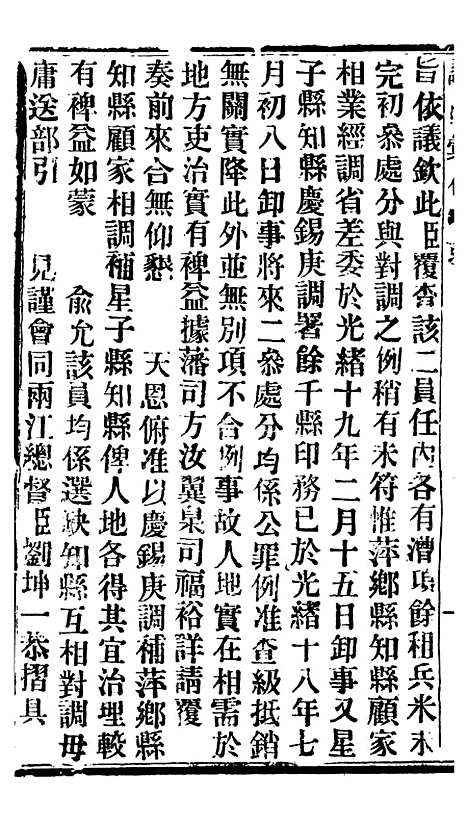 旨依議欽此臣覆查該二員任內各有漕項餘租兵米未
完初叅處分與對調之例稍有未符惟萍鄉縣知縣顧家
相業經調省差委於光緒十九年二月十五日卸事又星
子縣知縣慶錫庚調署餘干縣印務已於光緒十八年七
月初八日卸事將來二叅處分均係公罪例准查級抵銷
無關實降此外並無別項不合例事故人地實在相需於
地方吏治實有裨益據藩司方汝翼臬司福裕詳請覆
奏前來合無仰懇　　天恩俯准以慶錫庚調補萍鄉縣
知縣顧家相調補星子縣知縣俾人地各得其宜治理較
有裨益如蒙　　俞允該員均係選缺知縣互相對調毋
庸送部引　　見謹會同兩江總督臣劉坤一恭摺具